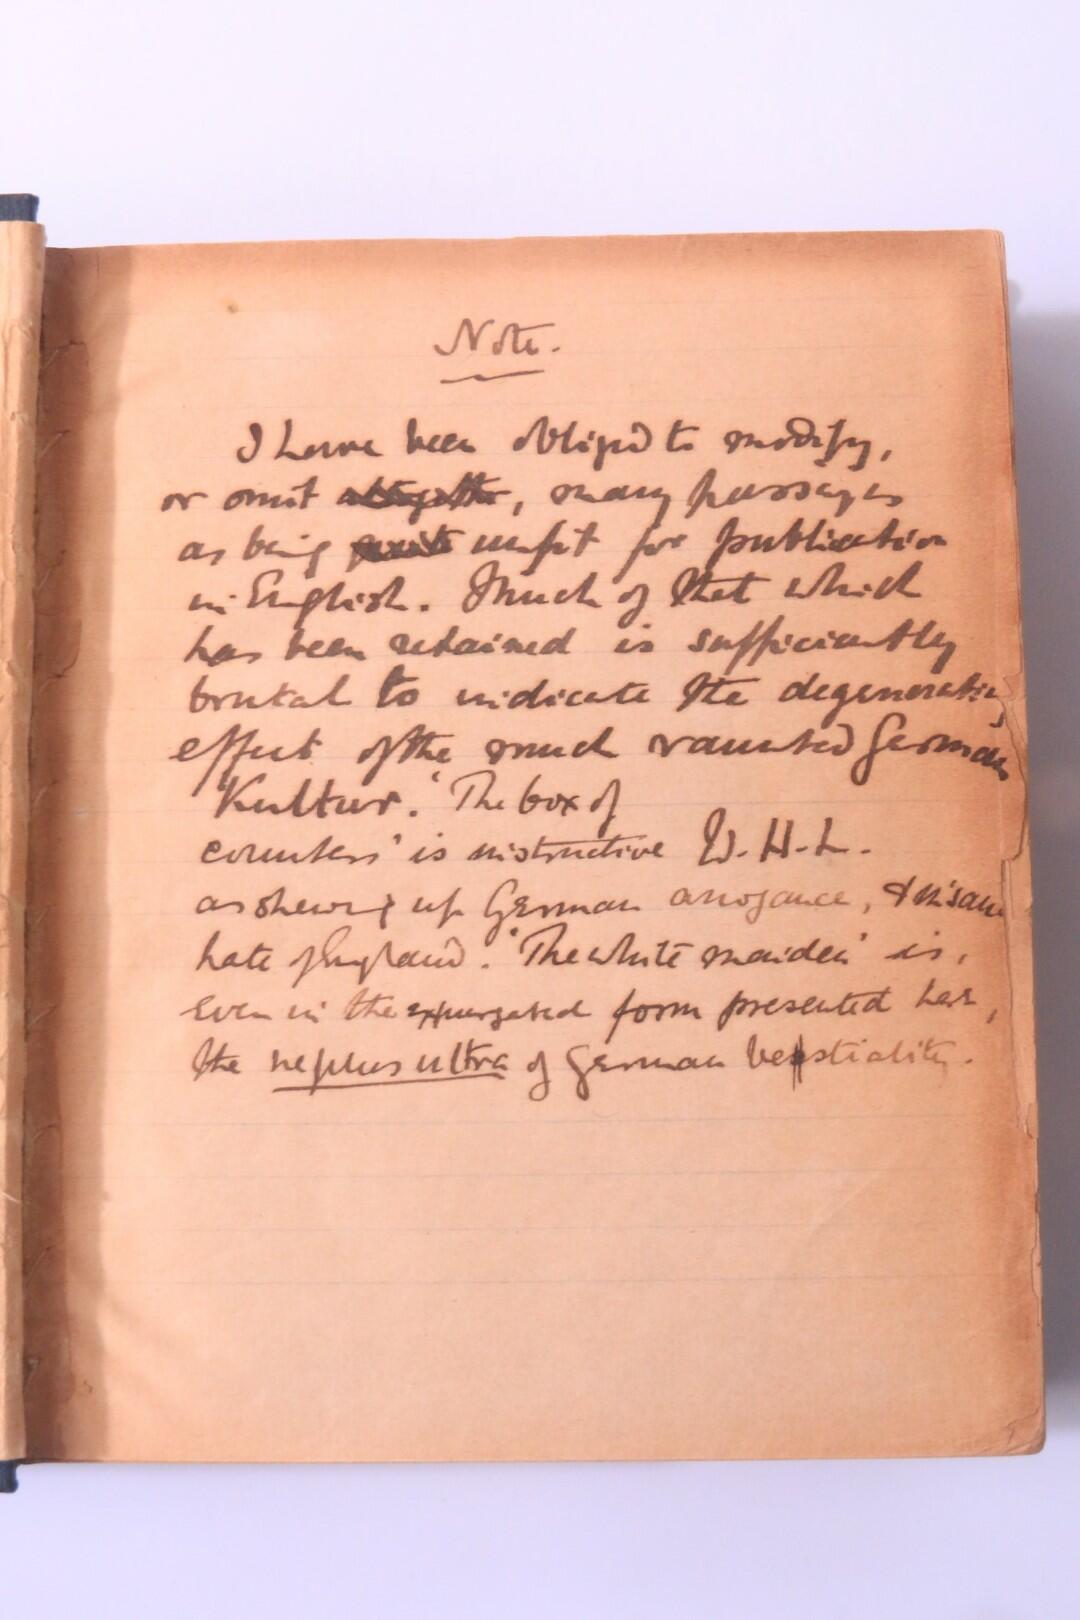 Note.
I have been obliged to modify,
or omit altogether, many passages
as being quite unfit for publication
in English. Much of that which
has been retained is sufficiently
brutal to indicate the degenerating
effect of the much vaunted German
'Kultur.' 'The box of
counters' is instructive W.H.L.
as shewing up German arrogance, & insane
hate of England. 'The white maiden' is,
even in the expurgated form presented here,
the ne plus ultra of German bestiality.